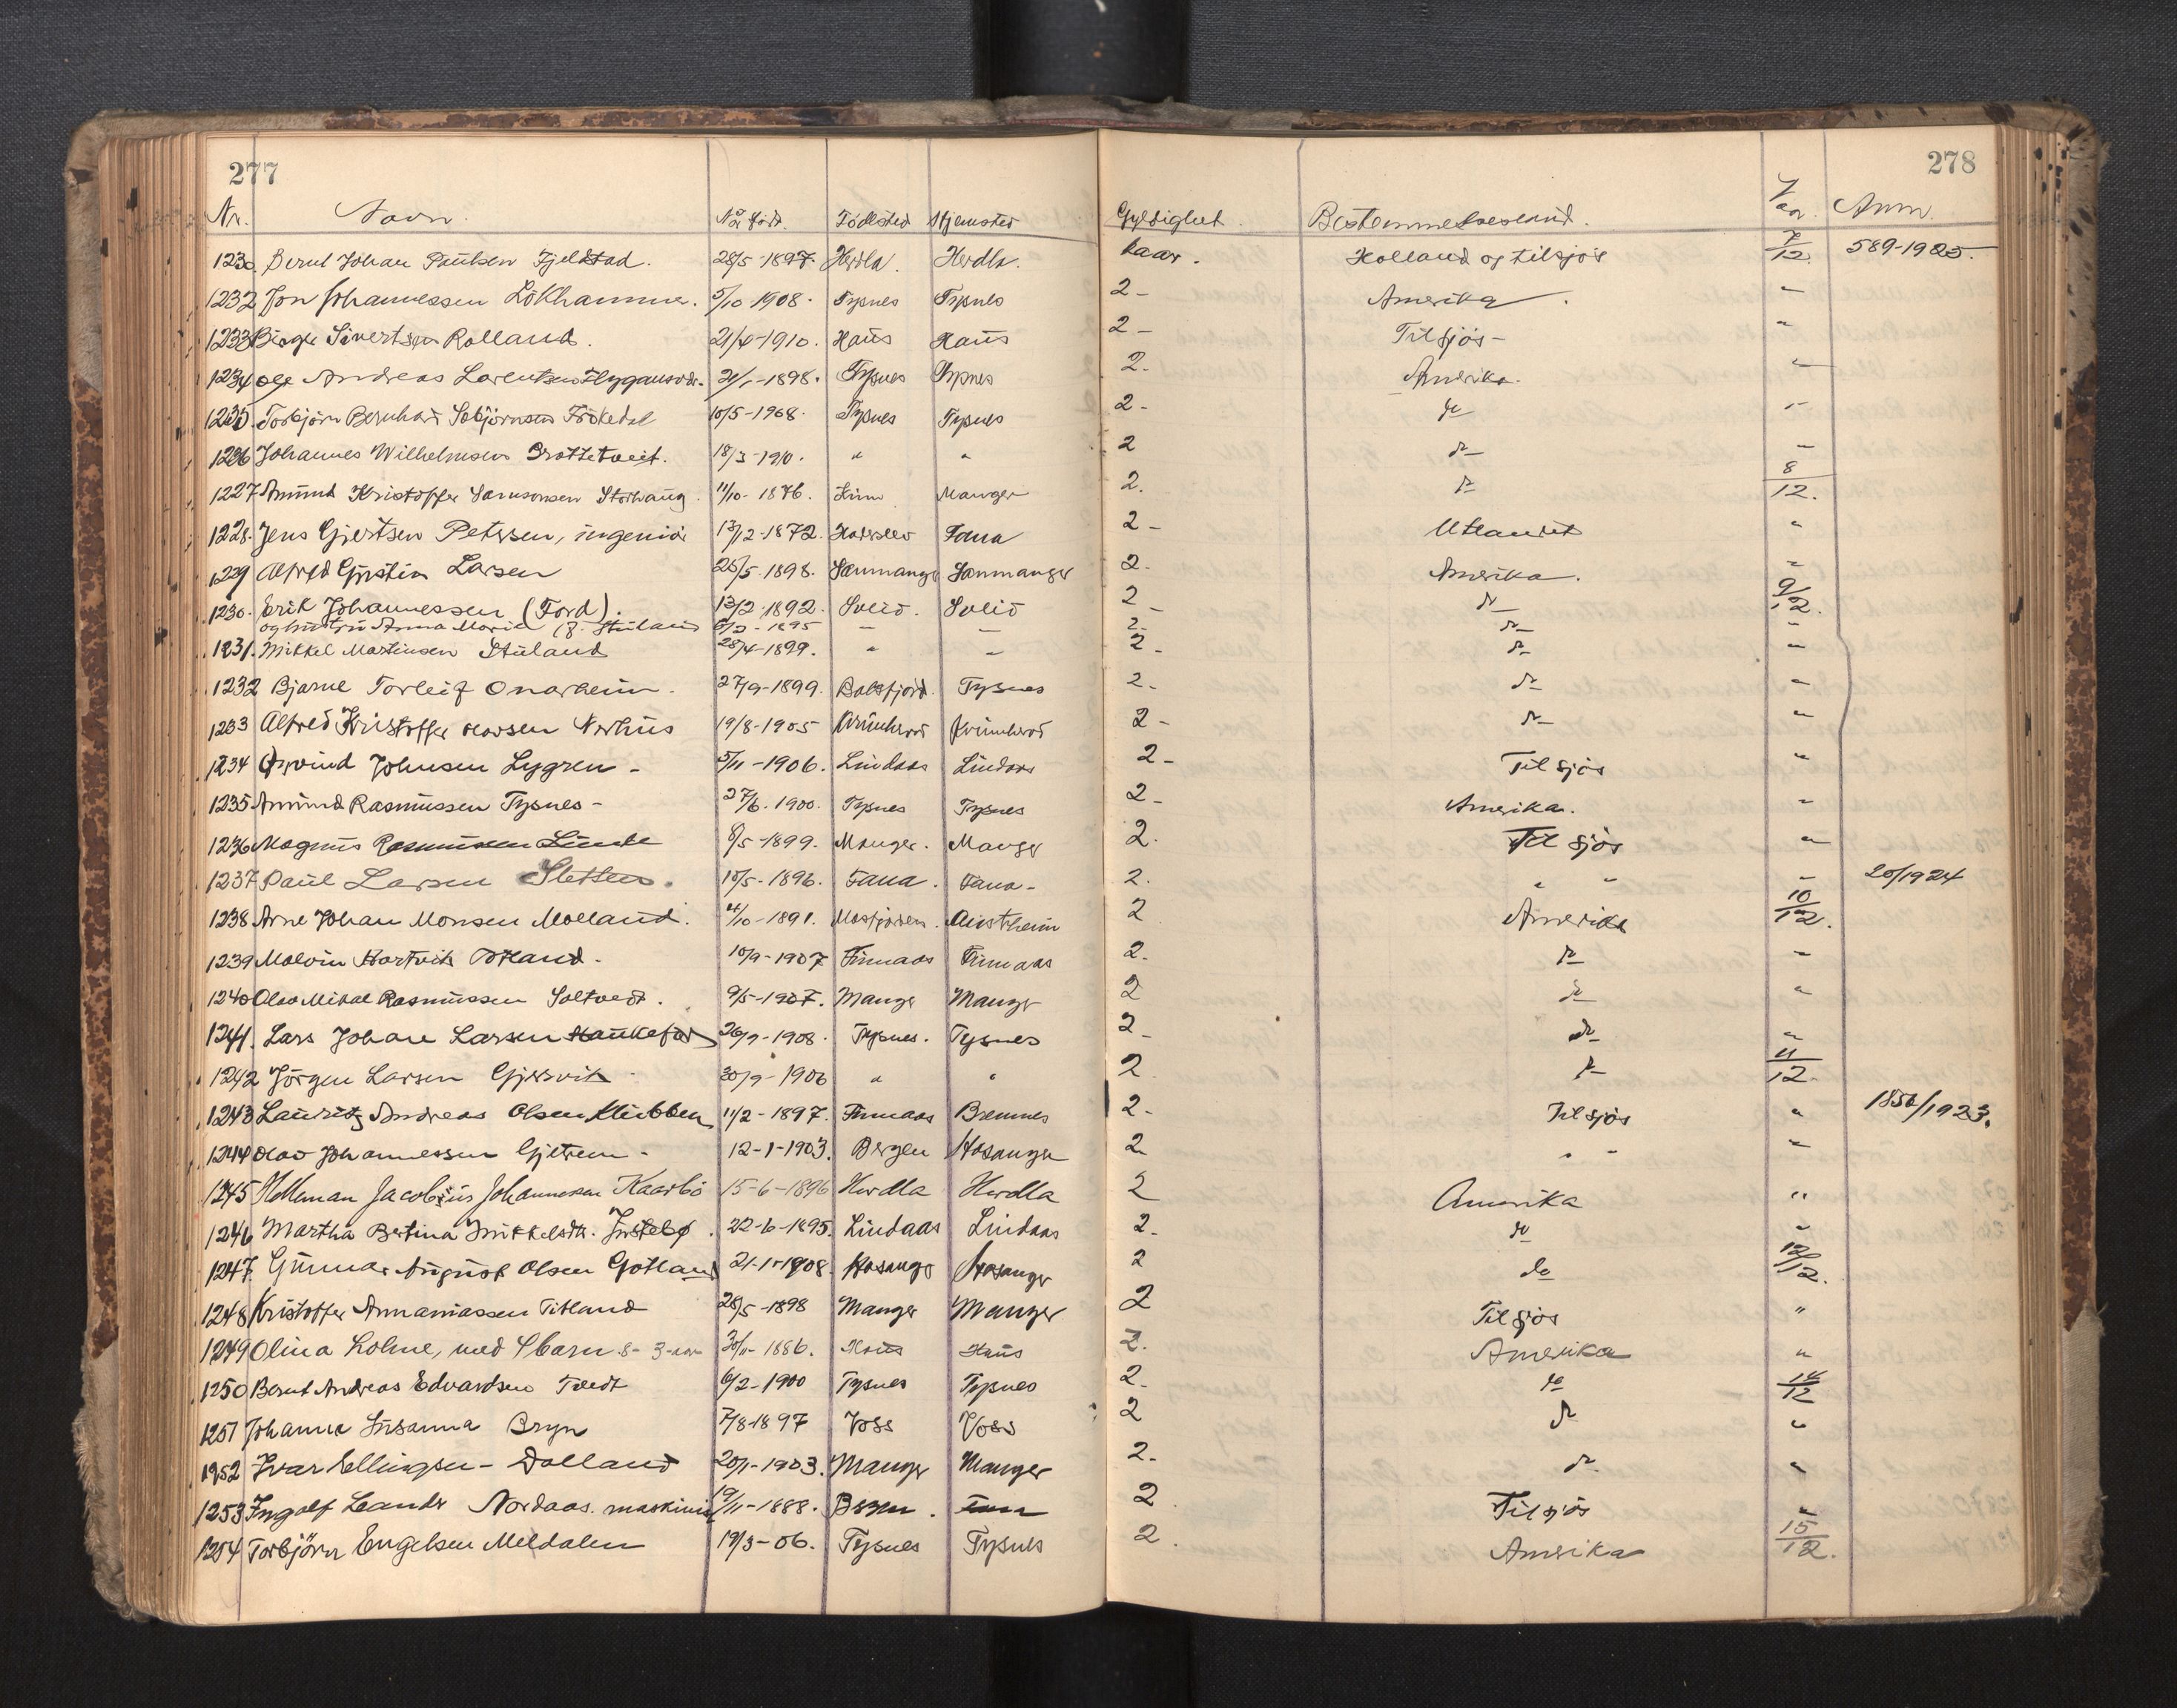 277
278
Nr. Navn. Når født. Födested Hjemsted Gyldighet. Bestemmelsesland. Anm.
1230 Bernt Johan Paulsen Fjeldstad. 28/5-1897. Herdla. Herdla. 2 aar. Holland og tilsjös 7/12. 589-1925.
1232 Jon Johannessen Lökhammer. 5/10-1908. Tysnes Tysnes 2- Amerika. "
1233 Birger Sivertsen Rolland. 21/4-1910. Haus Haus 2- Tilsjös- "
1234 Ole Andreas Larentsen 21/1-1898. Tysnes Tysnes 2. Amerika. "
1235. Torbjörn Bernhard Frökedal 10/5-1908. Tysnes Tysnes 2- do "
1226 Johannes Wilhelmsen Brattetveit. 18/3-1910. " " 2 do "
1227 Amund Kristoffer Samsonsen Storhaug. 11/10-1876. Kinn Manger 2. do 8/12.
1228. Jens Gjertsen Petersen, ingeniör 13/12-1872. Haderslev Fana 2- Utlandet "
1229 Alfred Larsen 25/5-1898. Samnanger Samnanger 2. Amerika. "
1230. Erik Johannessen (Ford). 13/2-1892. Solid. Solid 2- do 9/12.
og hustru Anna Marie 1895 — — 2- do "
1231. Mikkel Martinsen Stuland 28/4-1899. " " 2- do "
1232 Bjarne Torleif Onarheim. 27/9-1899. Balsfjord. Tysnes 2- do "
1233 Alfred Kristoffer Nerhus 19/8-1905 Kvinnherad Kvinnherad 2- do "
1234 Øyvind Johnsen Lygren- 5/11-1906. Lindaas Lindaas 2- Tilsjös "
1235 Amund Rasmussen Tysnes- 27/6.1900. Tysnes Tysnes 2- Amerika. "
1236 Magnus Rasmussen Linde 8/5-1899. Manger. Manger 2. Til sjös "
1237 Paul Larsen Sletten. 10/5-1896. Fana. Fana- 2. " " " 20/1924
1238 Arne Johan Monsen Molland. 4/10-1891. Masfjorden. Austrheim 2 Amerika 10/12.
1239 Malvin Hartvik 10/9-1907 Finnaas Finnaas 2. do "
1240 Olav Mikal Rasmussen Soltvedt. 9/5-1907. Manger Manger 2 do "
1241. Lars Johan Larsen Haukefær 26/9-1908. Tysnes. Tysnes 2- do "
1242 Jörgen Larsen Gjersvik 30/9-1906 " " 2 do 11/12.
1243 Lauritz Andreas Olsen Klubben 11/2-1897. Finnaas Bremnes 2- Tilsjös " 1856/1923.
1244 Olav Johannessen 12-1-1903. Bergen Hosanger 2 " " "
1245 Helleman Jacobius Johannesen Kaarbö 15-6-1896 Herdla Herdla 2 Amerika "
1246 Martha Bertina Mikkelsdtr. 22-6-1895. Lindaas Lindaas 2. do "
1247. Gunnar August Olsen Götland 21-1-1908. Hosanger Hosanger 2 do 12/12.
1248 Kristoffer Annaniassen Titland 28/5-1898 Manger Manger 2 Tilsjös "
1249 Olina Lohne, med 4 barn 8- 3-aar 30/11-1886. Haus Haus 2. Amerika "
1250 Bernt Andreas Edvardsen Tvedt 6/2-1900 Tysnes Tysnes 2- do 14/12
1251 Johanna Susanna Bryn 7/8-1897 Voss Voss 2 do "
1252 Ivar Ellingsen- Dalland 20/1-1903. Manger Manger 2- do. "
1253 Ingolf Leander Nordaas. maskinist 19/11-1888. Bergen. 2 Tilsjös "
1254 Torbjörn Engelsen Meldalen 19/3-06. Tysnes Tysnes 2. Amerika 15/12.